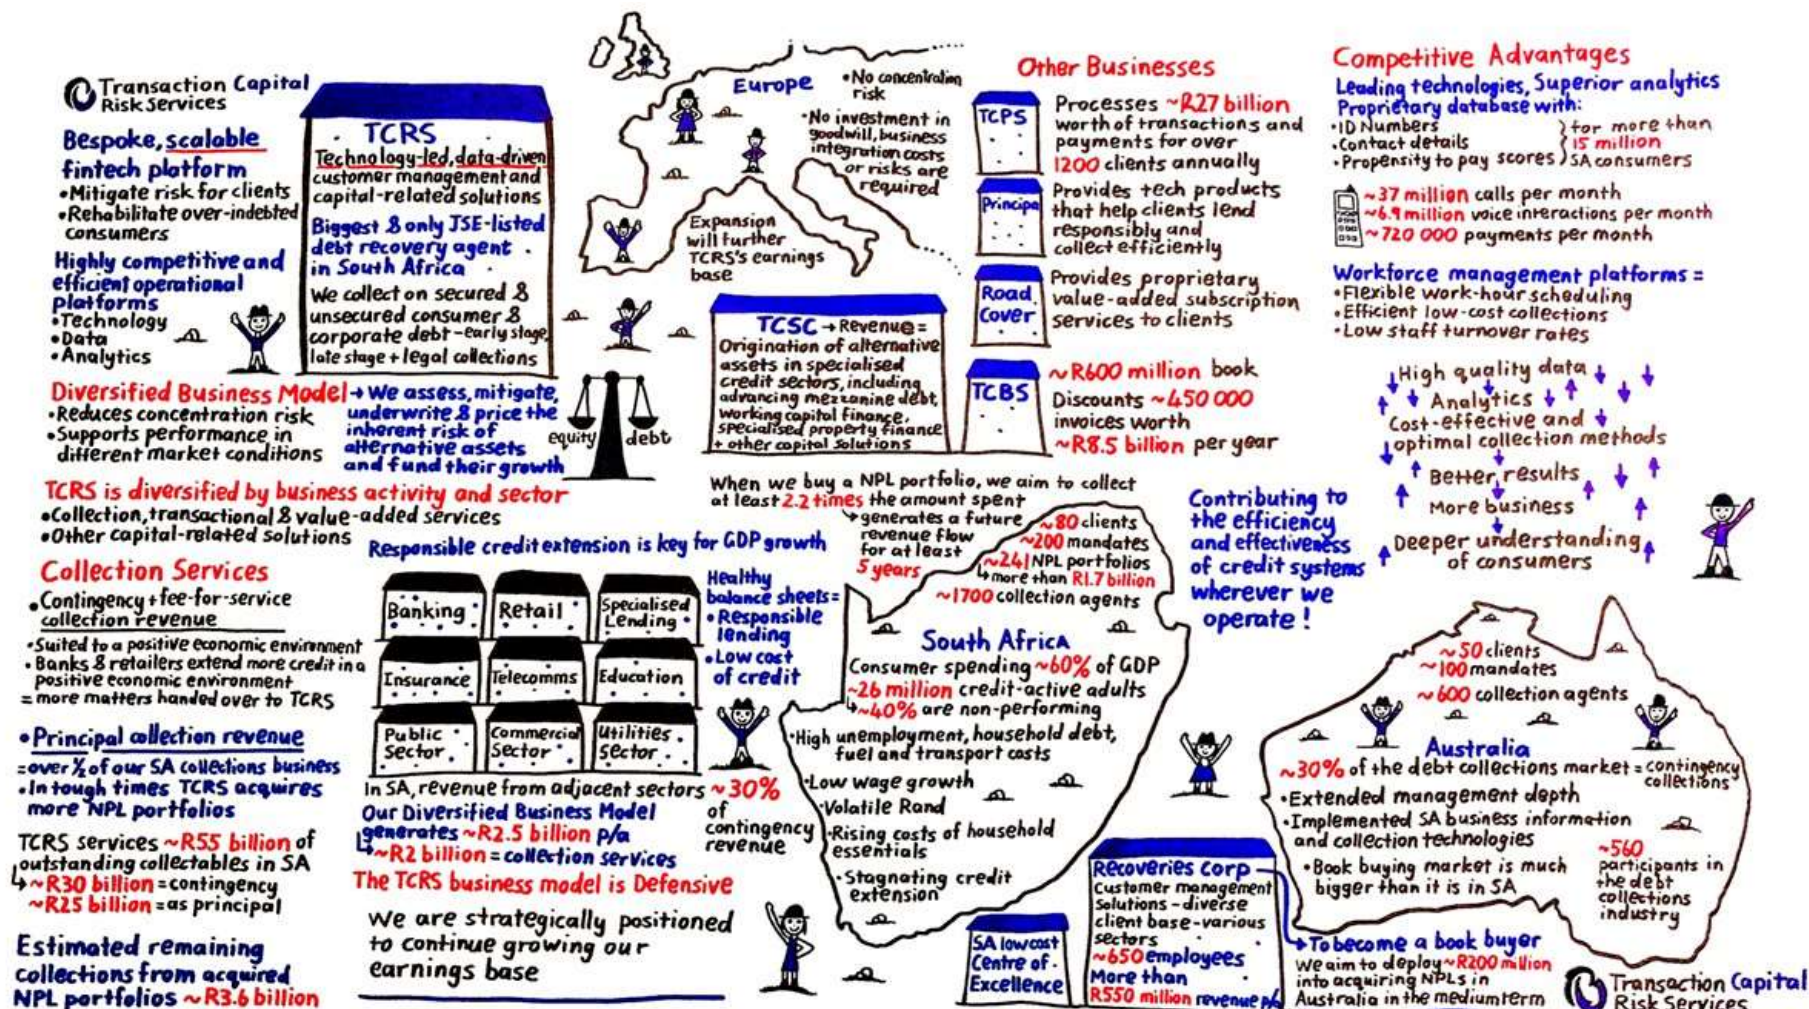 Transaction Capital
Risk Services
Bespoke, scalable
fintech platform
•Mitigate risk for clients
•Rehabilitate over-indebted
consumers
Highly competitive and
efficient operational
platforms
•Technology
•Data
•Analytics
TCRS
Technology-led, data-driven
customer management and
capital-related solutions
Biggest & only JSE-listed
debt recovery agent
in South Africa
We collect on secured &
unsecured consumer &
corporate debt - early stage,
late stage + legal collections
Diversified Business Model → We assess, mitigate,
underwrite & price the
inherent risk of
alternative assets
and fund their growth
•Reduces concentration risk
•Supports performance in
different market conditions
equity debt
TCRS is diversified by business activity and sector
•Collection, transactional & value-added services
•Other capital-related solutions
Collection Services
•Contingency + fee-for-service
collection revenue
•Suited to a positive economic environment
•Banks & retailers extend more credit in a
positive economic environment
= more matters handed over to TCRS
•Principal collection revenue
= over ½ of our SA collections business
•In tough times TCRS acquires
more NPL portfolios
TCRS services ~R55 billion of
outstanding collectables in SA
↳ ~R30 billion = contingency
~R25 billion = as principal
Estimated remaining
collections from acquired
NPL portfolios ~R3.6 billion
Responsible credit extension is key for GDP growth
Banking
Retail
Specialised
Lending
Insurance
Telecomms
Education
Public
Sector
Commercial
Sector
Utilities
Sector
Healthy
balance sheets =
•Responsible
lending
•Low cost
of credit
In SA, revenue from adjacent sectors ~30%
of
contingency
revenue
Our Diversified Business Model
generates ~R2.5 billion p/a
↳ ~R2 billion = collection services
The TCRS business model is Defensive
We are strategically positioned
to continue growing our
earnings base
Europe
•No concentration
risk
•No investment in
goodwill, business
integration costs
or risks are
required
Expansion
will further
TCRS's earnings
base
TCSC → Revenue =
Origination of alternative
assets in specialised
credit sectors, including
advancing mezzanine debt,
working capital finance,
specialised property finance
+ other capital solutions
When we buy a NPL portfolio, we aim to collect
at least 2.2 times the amount spent
↳ generates a future
revenue flow
for at least
5 years
~80 clients
~200 mandates
~241 NPL portfolios
↳ more than R1.7 billion
~1700 collection agents
South Africa
Consumer spending ~60% of GDP
~26 million credit-active adults
↳ ~40% are non-performing
•High unemployment, household debt,
fuel and transport costs
•Low wage growth
•Volatile Rand
•Rising costs of household
essentials
•Stagnating credit
extension
Other Businesses
TCPS
Processes ~R27 billion
worth of transactions and
payments for over
1200 clients annually
Principa
Provides tech products
that help clients lend
responsibly and
collect efficiently
Road
Cover
Provides proprietary
value-added subscription
services to clients
TCBS
~R600 million book
Discounts ~450 000
invoices worth
~R8.5 billion per year
Contributing to
the efficiency
and effectiveness
of credit systems
wherever we
operate!
Competitive Advantages
Leading technologies, Superior analytics
Proprietary database with:
•ID Numbers
•Contact details
•Propensity to pay scores
for more than
15 million
SA consumers
~37 million calls per month
~6.9 million voice interactions per month
~720 000 payments per month
Workforce management platforms =
•Flexible work-hour scheduling
•Efficient low-cost collections
•Low staff turnover rates
High quality data
Analytics
Cost-effective and
optimal collection methods
Better results
More business
Deeper understanding
of consumers
~50 clients
~100 mandates
~600 collection agents
Australia
~30% of the debt collections market = contingency
collections
•Extended management depth
•Implemented SA business information
and collection technologies
•Book buying market is much
bigger than it is in SA
~560
participants in
the debt
collections
industry
SA low cost
Centre of
Excellence
Recoveries Corp
Customer management
solutions - diverse
client base - various
sectors
~650 employees
More than
R550 million revenue p/a
To become a book buyer
We aim to deploy ~R200 million
into acquiring NPLs in
Australia in the medium term
Transaction Capital
Risk Services